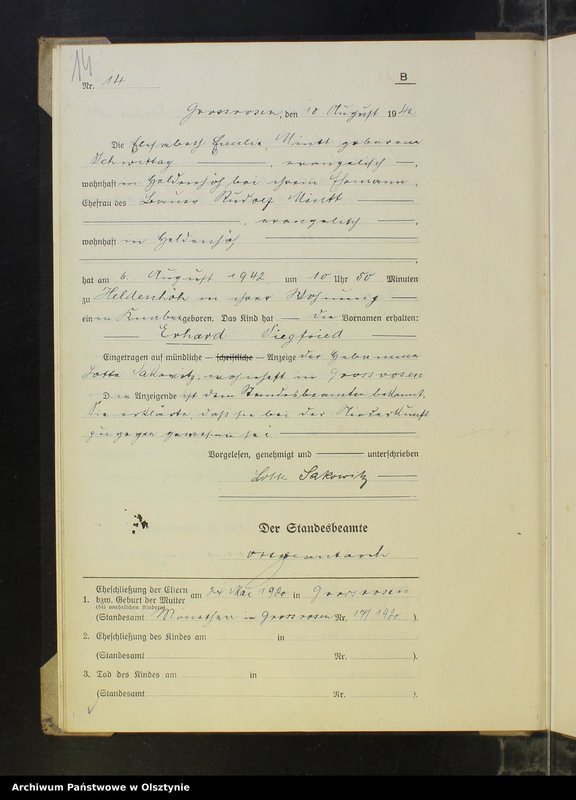 14
Nr. 14
B
Grossrosen, den 10 August 1942
Die Elisabeth Emilie geborene
Schwittay, evangelisch,
wohnhaft in Heldenhöh bei ihrem Ehemann,
Ehefrau des Bauer Rudolf
, evangelisch,
wohnhaft in Heldenhöh
hat am 6. August 1942 um 10 Uhr 50 Minuten
zu Heldenhöh in ihrer Wohnung
einen Knaben geboren. Das Kind hat die Vornamen erhalten:
Erhard Siegfried
Eingetragen auf mündliche – schriftliche – Anzeige der Hebamme
Lotte Sakowitz, wohnhaft in Grossrosen
Die Anzeigende ist dem Standesbeamten bekannt.
Sie erklärte, daß sie bei der Niederkunft
zugegen gewesen sei
Vorgelesen, genehmigt und unterschrieben
Lotte Sakowitz
Der Standesbeamte
1. Eheschließung der Eltern
bzw. Geburt der Mutter
(bei unehelichen Kindern)
am Mai in Grossrosen
(Standesamt Monethen in Grossrosen Nr. ).
2. Eheschließung des Kindes am in
(Standesamt Nr. ).
3. Tod des Kindes am in
(Standesamt Nr. ).
Archiwum Państwowe w Olsztynie